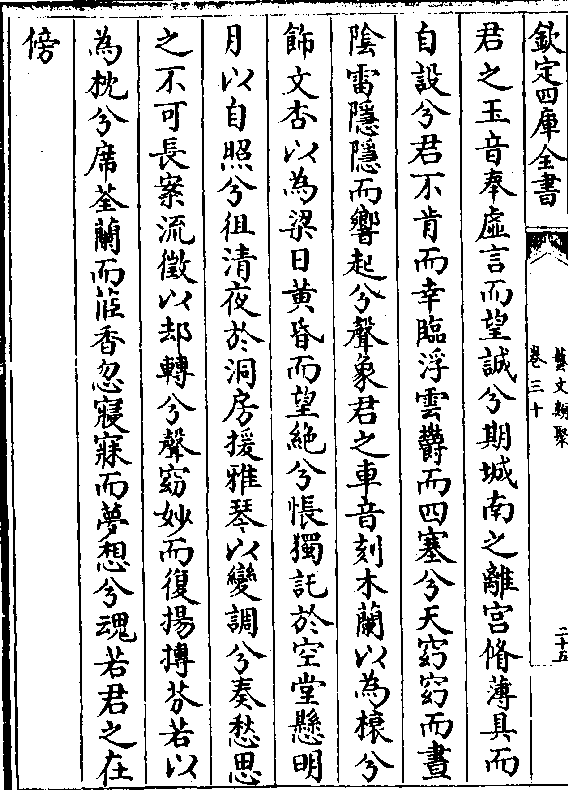 欽定四庫全書
藝文類聚
卷三十
二十五
君之玉音奉虛言而望誠兮期城南之離宮脩薄具而
自設兮君不肯而幸臨浮雲鬱而四塞兮天窈窈而晝
陰雷隱隱而響起兮聲象君之車音刻木蘭以為榱兮
飾文杏以為梁日黃昏而望絕兮悵獨託於空堂懸明
月以自照兮徂清夜於洞房援雅琴以變調兮奏愁思
之不可長案流徵以却轉兮聲窈妙而復揚摶芬若以
為枕兮席荃蘭而茝香忽寢寐而夢想兮魂若君之在
傍